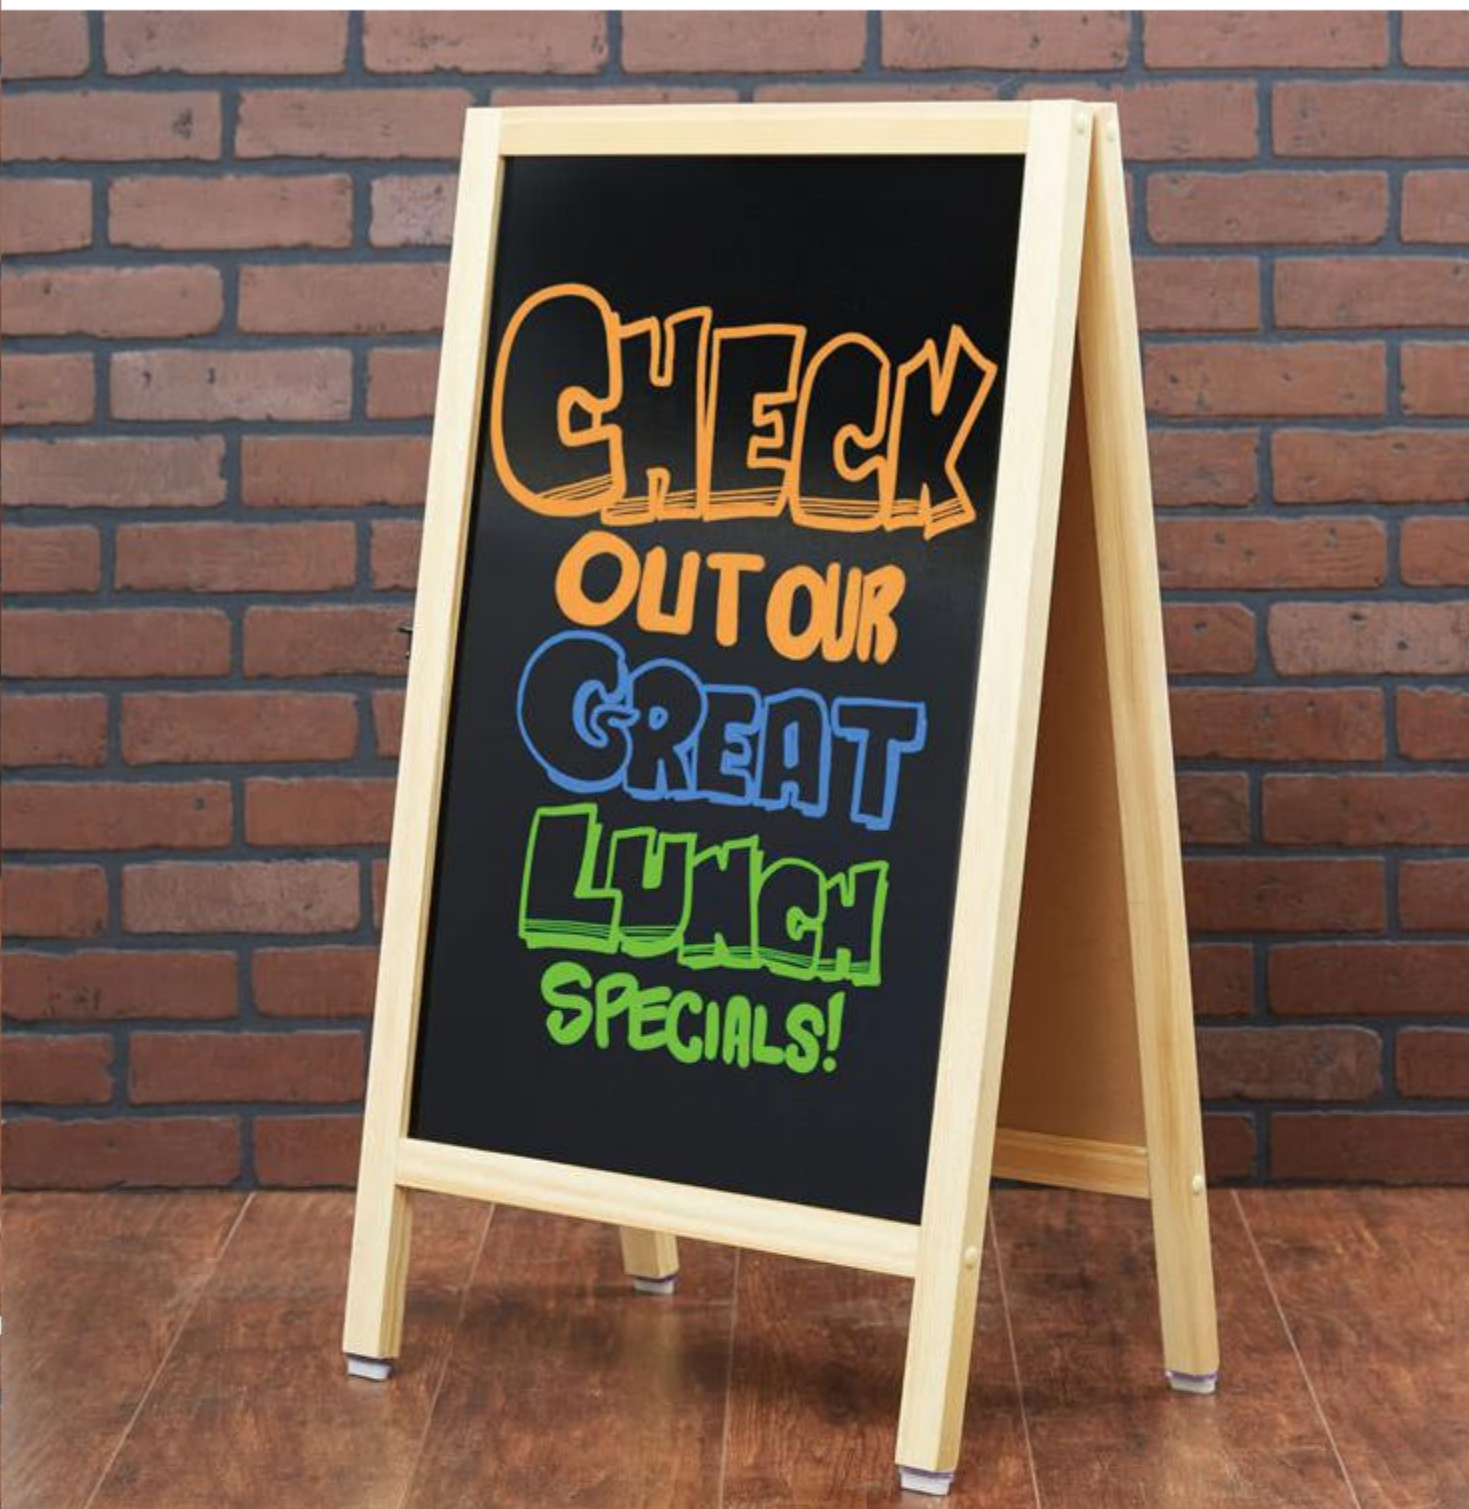 CHECK
OUT OUR
GREAT
LUNCH
SPECIALS!